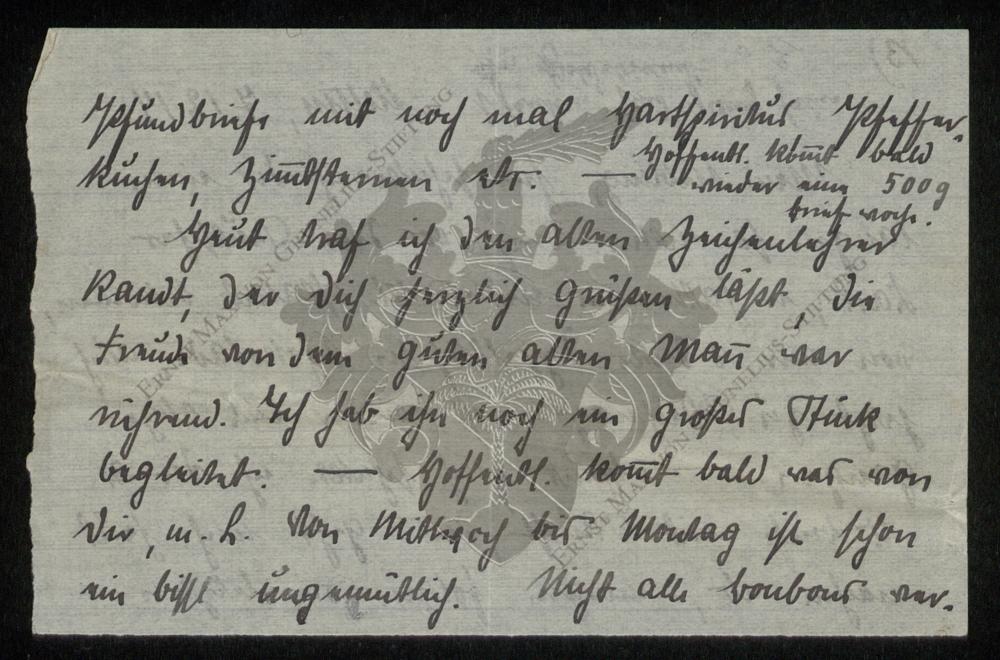 Pfundbriefe mit noch mal Hartspiritus Pfeffer-
kuchen, Zimtsternen etc. — Hoffentl. kom̅t bald
wieder eine 500 g
brief woche.
Heut traf ich den alten Zeichenlehrer
Kandt, der Dich herzlich grüßen läßt, die
Freude von dem guten alten Man̅ war
rührend. Ich hab ihn noch ein großes Stück
begleitet. — Hoffentl. kom̅t bald was von
Dir, m. L. Von Mittwoch bis Montag ist schon
ein bissl ungemütlich. Nicht alle bonbons ver-
ERNST MARTIN GURNELIUS STIFTUNG